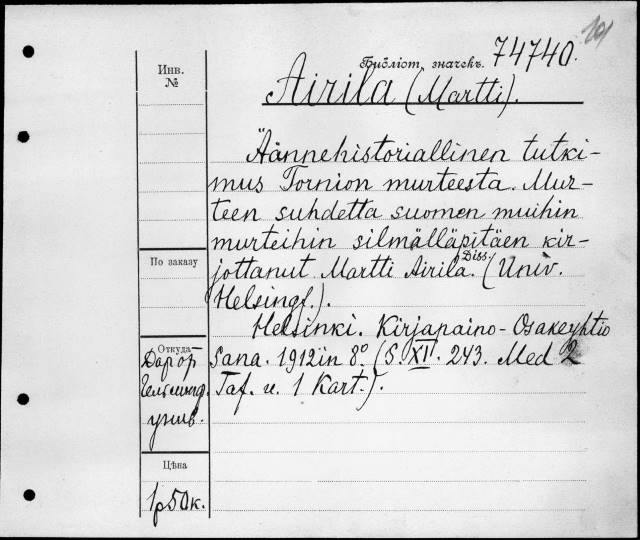 101
Инв.
№
Библіот. значекъ. 74740.
Airila (Martti).
Äännehistoriallinen tutki-
mus Tornion murteesta. Mur-
teen suhdetta suomen muihin
murteihin silmälläpitäen kir-
По заказу
jottanut Martti Airila. Diss. (Univ.
Helsingf.).
Helsinki. Kirjapaino-Osakeyhtio
Откуда
Даръ отъ
Гельсингф.
унив.
Sana. 1912 in 8°. (S. XI. 243. Med 2
Taf. u. 1 Kart.).
Цѣна
1р50к.